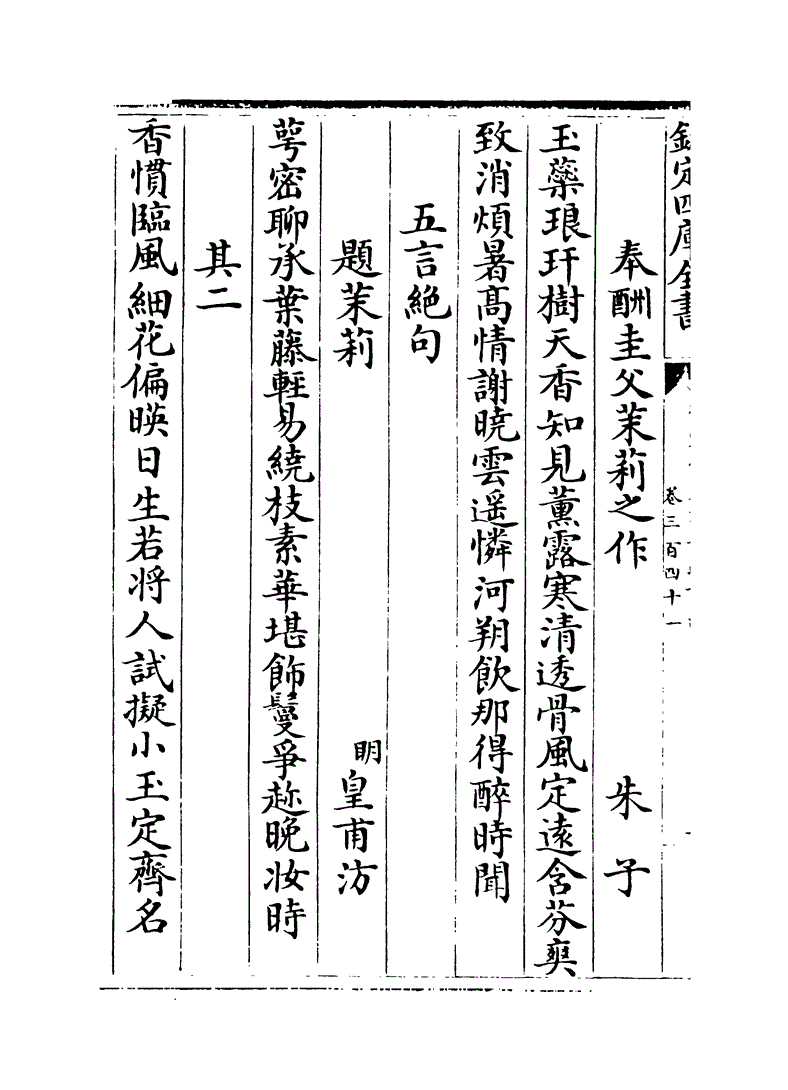 欽定四庫全書
卷三百四十一
奉酬圭父茉莉之作 朱子
玉蘂琅玕樹天香知見薰露寒清透骨風定逺含芬爽
致消煩暑髙情謝曉雲遥憐河朔飲那得醉時聞
五言絶句
題茉莉 明皇甫汸
萼密聊承葉藤輕易繞枝素華堪飾鬘爭趂晚妝時
其二
香慣臨風細花偏暎日生若将人試擬小玉定齊名